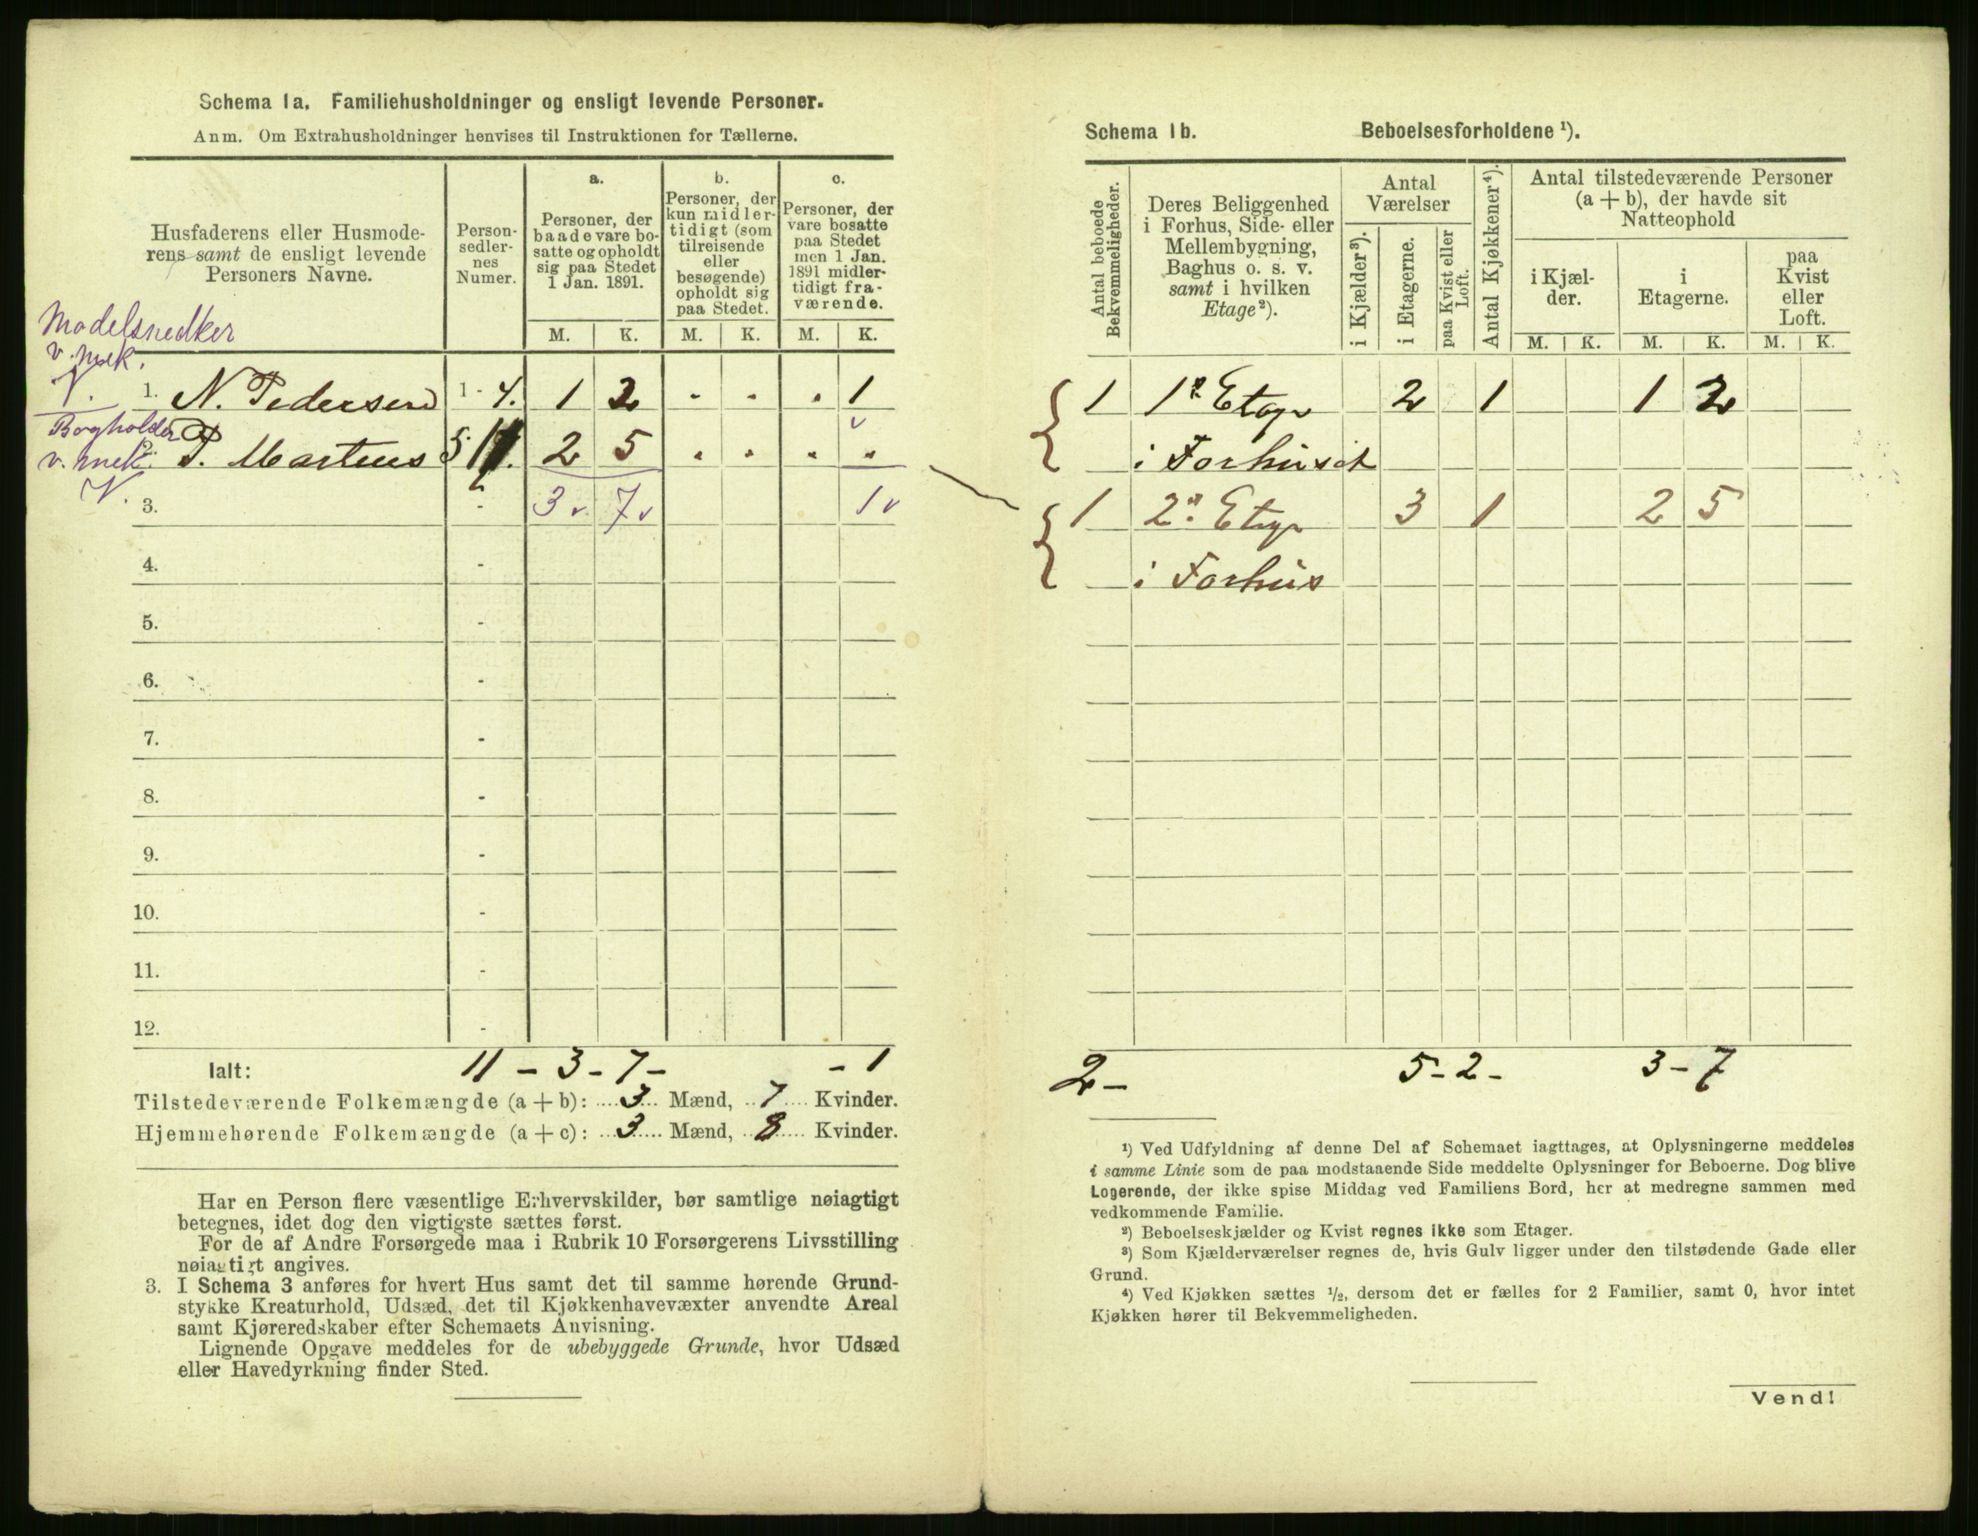 Schema 1a. Familiehusholdninger og ensligt levende Personer.
Anm. Om Extrahusholdninger henvises til Instruktionen for Tællerne.
Husfaderens eller Husmode-
rens samt de ensligt levende
Personers Navne.
Person-
sedler-
nes
Numer.
a.
Personer, der
baade vare bo-
satte og opholdt
sig paa Stedet
1 Jan. 1891.
b.
Personer, der
kun midler-
tidigt (som
tilreisende
eller
besøgende)
opholdt sig
paa Stedet.
c.
Personer, der
vare bosatte
paa Stedet
men 1 Jan.
1891 midler-
tidigt fra-
værende.
M. K. M. K. M. K.
Modelsnedker
v. mek.
V.
1. N. Pedersen 1 - 4. 1 2 . . . 1
Bogholder
v. mek.
V.
2. P. Martens 5 11. 2 5 . . . .
3. - 3 v 7 v 1 v
4. -
5. -
6. -
7. -
8. -
9. -
10. -
11. -
12. -
Ialt: 11 - 3 - 7 - - 1
Tilstedeværende Folkemængde (a + b): 3 Mænd, 7 Kvinder.
Hjemmehørende Folkemængde (a + c): 3 Mænd, 8 Kvinder.
Har en Person flere væsentlige Erhvervskilder, bør samtlige nøiagtigt
betegnes, idet dog den vigtigste sættes først.
For de af Andre Forsørgede maa i Rubrik 10 Forsørgerens Livsstilling
nøiagtigt angives.
3. I Schema 3 anføres for hvert Hus samt det til samme hørende Grund-
stykke Kreaturhold, Udsæd, det til Kjøkkenhavevæxter anvendte Areal
samt Kjøreredskaber efter Schemaets Anvisning.
Lignende Opgave meddeles for de ubebyggede Grunde, hvor Udsæd
eller Havedyrkning finder Sted.
Schema 1b. Beboelsesforholdene ¹).
Antal beboede
Bekvemmeligheder.
Deres Beliggenhed
i Forhus, Side- eller
Mellembygning,
Baghus o. s. v.
samt i hvilken
Etage²).
Antal
Værelser
i Kjælder³).
i Etagerne.
paa Kvist eller
Loft.
Antal Kjøkkener⁴).
Antal tilstedeværende Personer
(a + b), der havde sit
Natteophold
i Kjæl-
der.
i
Etagerne.
paa
Kvist
eller
Loft.
M. K. M. K. M. K.
1 1ste Etage 2 1 1 2
i Forhuset
1 2den Etage 3 1 2 5
i Forhus
2 - 5 - 2 - 3 - 7
¹) Ved Udfyldning af denne Del af Schemaet iagttages, at Oplysningerne meddeles
i samme Linie som de paa modstaaende Side meddelte Oplysninger for Beboerne. Dog blive
Logerende, der ikke spise Middag ved Familiens Bord, her at medregne sammen med
vedkommende Familie.
²) Beboelseskjælder og Kvist regnes ikke som Etager.
³) Som Kjælderværelser regnes de, hvis Gulv ligger under den tilstødende Gade eller
Grund.
⁴) Ved Kjøkken sættes ½, dersom det er fælles for 2 Familier, samt 0, hvor intet
Kjøkken hører til Bekvemmeligheden.
Vend!